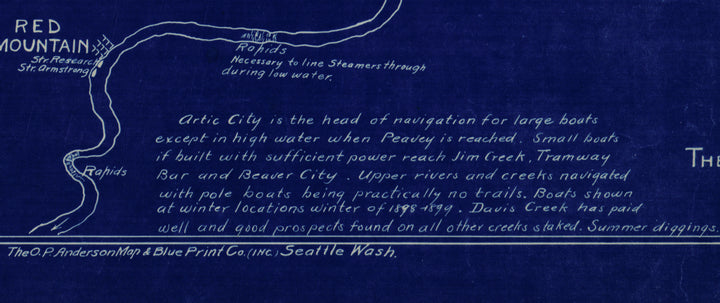 RED
MOUNTAIN
Str. Research
Str. Armstrong
Rapids
Necessary to line Steamers through
during low water.
Rapids
Artic City is the head of navigation for large boats
except in high water when Peavey is reached. Small boats
if built with sufficient power reach Jim Creek, Tramway
Bar and Beaver City. Upper rivers and creeks navigated
with pole boats being practically no trails. Boats shown
at winter locations winter of 1898-1899. Davis Creek has paid
well and good prospects found on all other creeks staked. Summer diggings.
THE
The O.P. Anderson Map & Blue Print Co. (INC.) Seattle Wash.